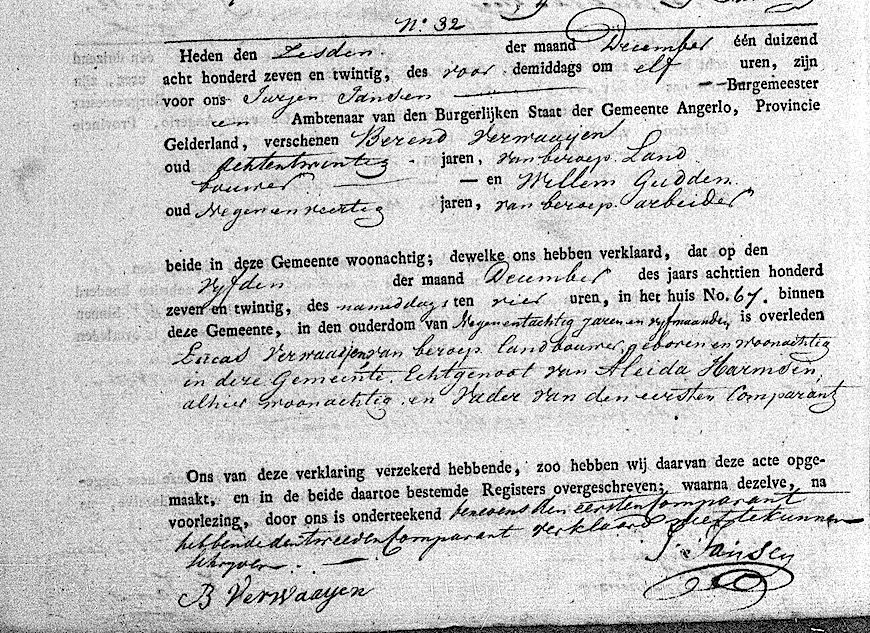 N.o 32
Heden den Zesden der maand December één duizend
acht honderd zeven en twintig, des voor demiddags om elf uren, zijn
voor ons Jurjen Jansen Burgemeester
en Ambtenaar van den Burgerlijken Staat der Gemeente Angerlo, Provincie
Gelderland, verschenen Berend Verwaaijen
oud Achtentwintig jaren, van beroep Land
bouwer — en Willem Gudden
oud Negenenveertig jaren, van beroep arbeider
beide in deze Gemeente woonachtig; dewelke ons hebben verklaard, dat op den
vyfden der maand December des jaars achttien honderd
zeven en twintig, des nameddags ten vier uren, in het huis No. 67. binnen
deze Gemeente, in den ouderdom van Negenentachtig jaren en vyf maanden is overleden
Lucas Verwaaijen van beroep landbouwer geboren en woonachtig
in deze Gemeente. Echtgenoot van Aleida Harmsen,
alhier woonachtig en Vader van den eersten Comparant
Ons van deze verklaring verzekerd hebbende, zoo hebben wij daarvan deze acte opge-
maakt, en in de beide daartoe bestemde Registers overgeschreven; waarna dezelve, na
voorlezing, door ons is onderteekend benevens den eersten Comparant
hebbende den tweeden Comparant verklaard niet te kunnen
schryven.
J. Jansen
B Verwaayen